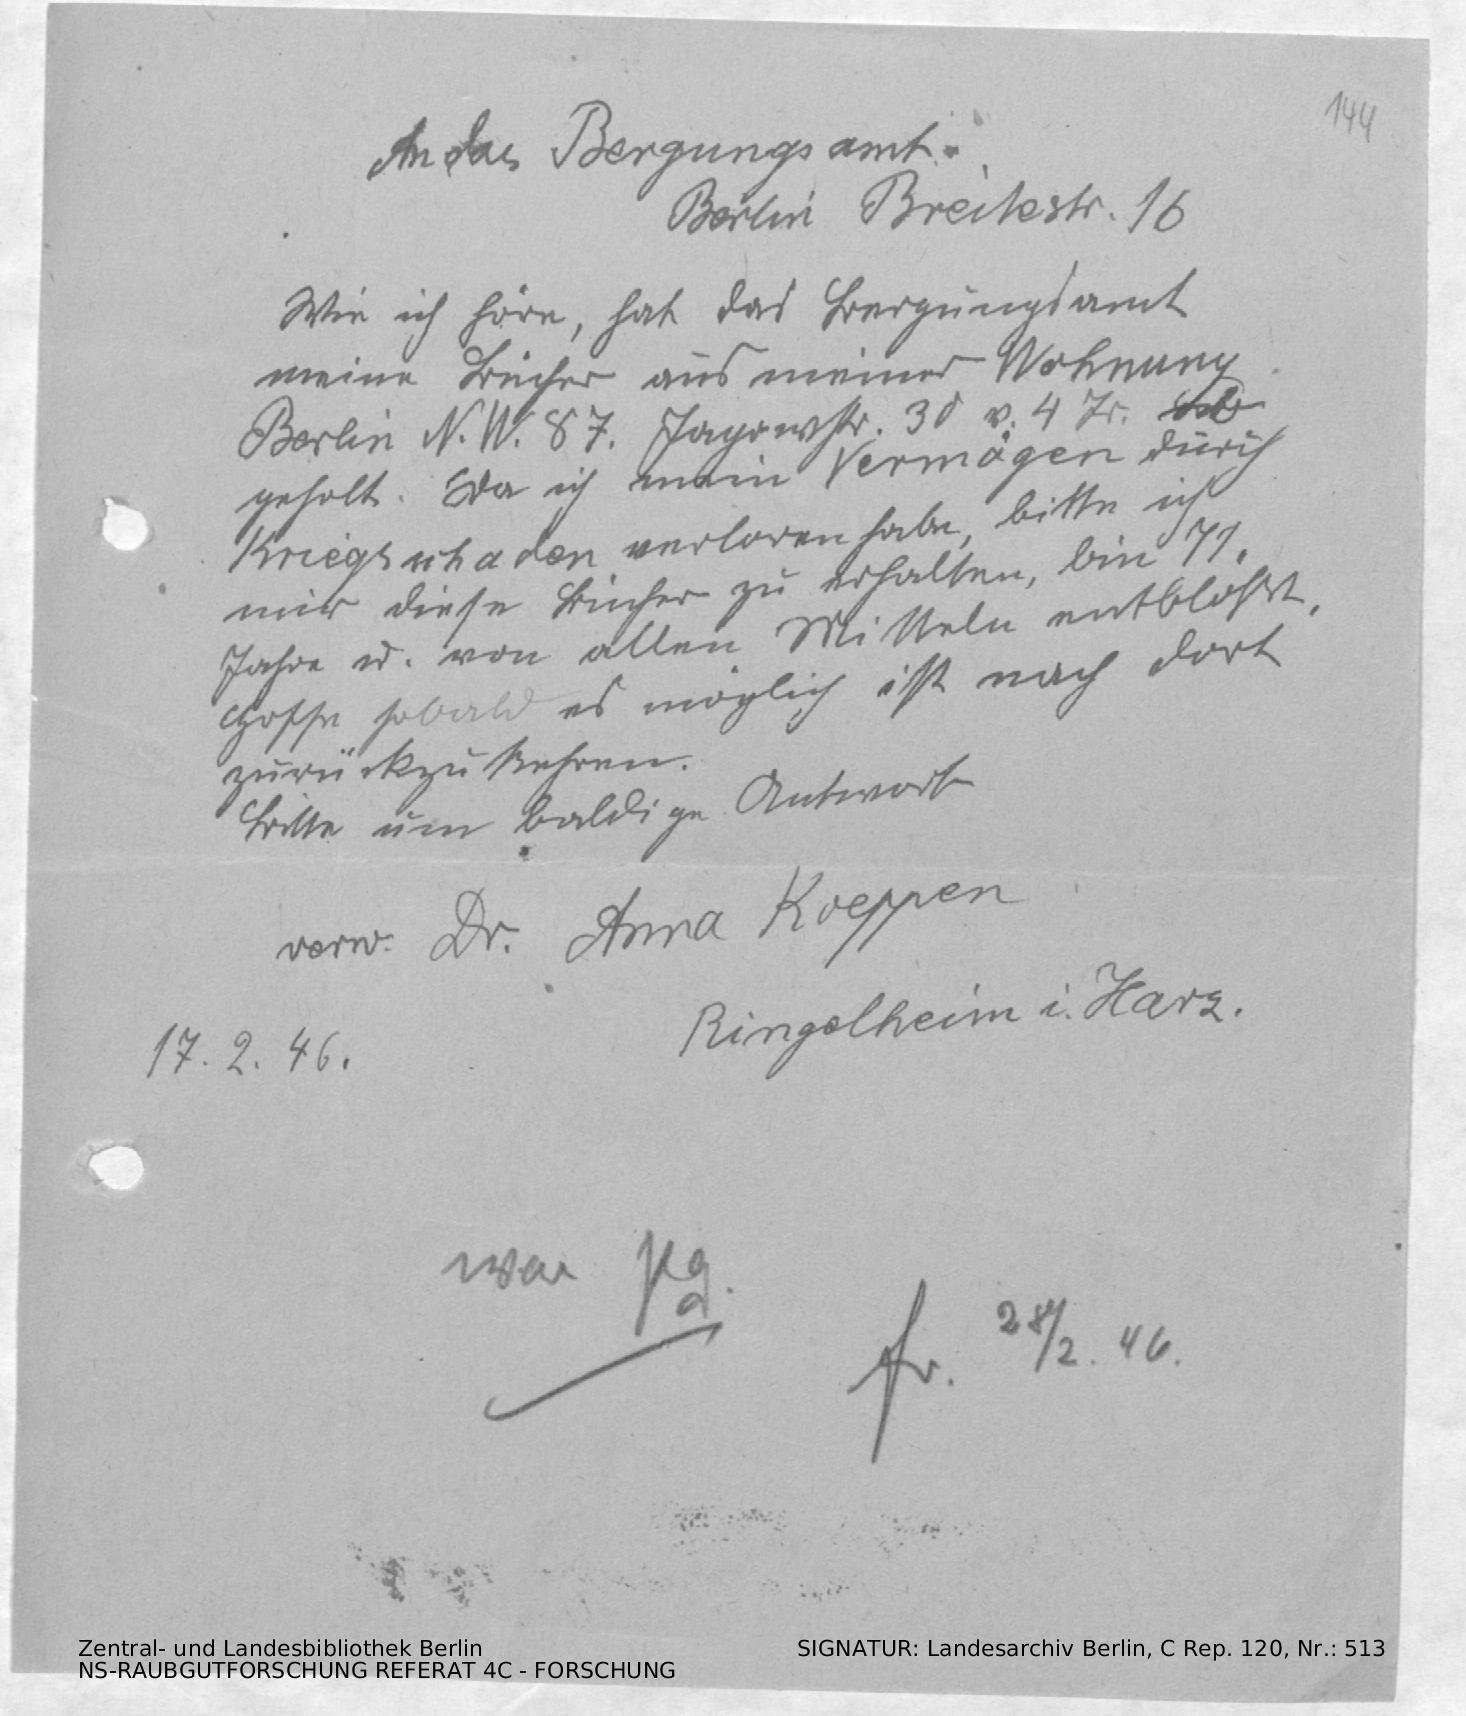 144
An das Bergungsamt.
Berlin Breitestr. 16
Wie ich höre, hat das Bergungsamt
meine Bücher aus meiner Wohnung
Berlin N.W. 87. Jagowstr. 30 v. 4 Tr.
geholt. Da ich mein Vermögen durch
Kriegsschaden verloren habe, bitte ich
mir diese Bücher zu erhalten, bin 71.
Jahre u. von allen Mitteln entblößt,
Hoffe sobald es möglich ist nach dort
zurückzukehren.
Bitte um baldige Antwort
verw. Dr. Anna Koeppen
Ringelheim i. Harz.
17. 2. 46.
war Pg.
fr. 28/2. 46.
Zentral- und Landesbibliothek Berlin
NS-RAUBGUTFORSCHUNG REFERAT 4C - FORSCHUNG
SIGNATUR: Landesarchiv Berlin, C Rep. 120, Nr.: 513